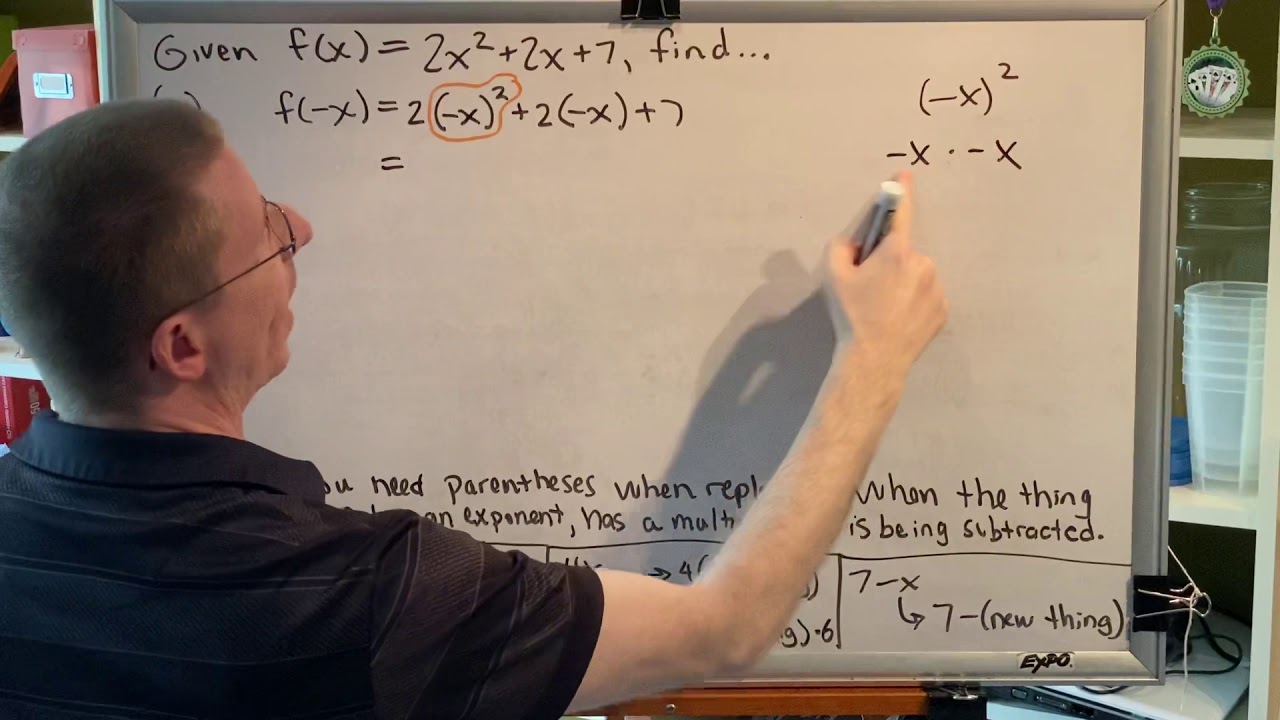 Given f(x) = 2x² + 2x + 7, find...
f(-x) = 2(-x)² + 2(-x) + 7
=
(-x)²
-x · -x
need parentheses when when the thing
an exponent, has a is being subtracted.
→ 4(
7-x
↳ 7-(new thing)
)·6
EXPO